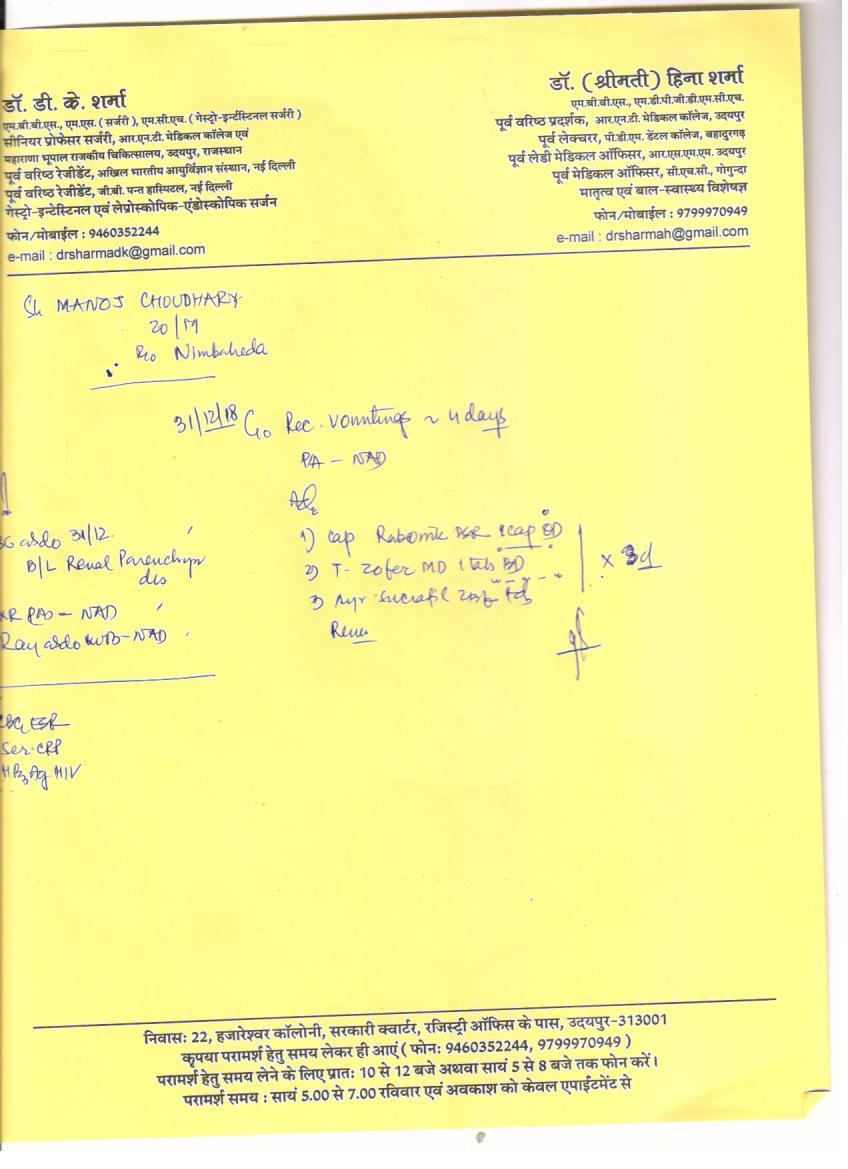 डॉ. डी. के. शर्मा
एम.बी.बी.एस., एम.एस. ( सर्जरी ), एम.सी.एच. ( गेस्ट्रो-इन्टेंस्टिनल सर्जरी )
सीनियर प्रोफेसर सर्जरी, आर.एन.टी. मेडिकल कॉलेज एवं
महाराणा भूपाल राजकीय चिकित्सालय, उदयपुर, राजस्थान
पूर्व वरिष्ठ रेजीडेंट, अखिल भारतीय आयुर्विज्ञान संस्थान, नई दिल्ली
पूर्व वरिष्ठ रेजीडेंट, जी.बी. पन्त हास्पिटल, नई दिल्ली
गेस्ट्रो-इन्टेस्टिनल एवं लेप्रोस्कोपिक-एंडोस्कोपिक सर्जन
फोन/मोबाईल : 9460352244
e-mail : drsharmadk@gmail.com
डॉ. (श्रीमती) हिना शर्मा
एम.बी.बी.एस., एम.डी.पी.जी.डी.एम.सी.एच.
पूर्व वरिष्ठ प्रदर्शक, आर.एन.टी. मेडिकल कॉलेज, उदयपुर
पूर्व लेक्चरर, पी.डी.एम. डेंटल कॉलेज, बहादुरगढ़
पूर्व लेडी मेडिकल ऑफिसर, आर.एस.एम.एम. उदयपुर
पूर्व मेडिकल ऑफिसर, सी.एच.सी., गोगुन्दा
मातृत्व एवं बाल-स्वास्थ्य विशेषज्ञ
फोन/मोबाईल : 9799970949
e-mail : drsharmah@gmail.com
Sh MANOJ CHOUDHARY
20/M
R/o Nimbaheda
31/12/18 C/o Rec. vomitings ~ 4 days
PA - NAD
1) cap Rabomik DSR 1cap OD
2) T- Zofer MD 1 tab BD
3) Syr. Sucrafil tds
x 3d
31/12.
B/L Renal Parenchyma
dis
- NAD
KUB-NAD
CBC, ESR
Ser. CRP
HBsAg. HIV
निवास: 22, हजारेश्वर कॉलोनी, सरकारी क्वार्टर, रजिस्ट्री ऑफिस के पास, उदयपुर-313001
कृपया परामर्श हेतु समय लेकर ही आएं ( फोन: 9460352244, 9799970949 )
परामर्श हेतु समय लेने के लिए प्रात: 10 से 12 बजे अथवा सायं 5 से 8 बजे तक फोन करें।
परामर्श समय : सायं 5.00 से 7.00 रविवार एवं अवकाश को केवल एपाईंटमेंट से